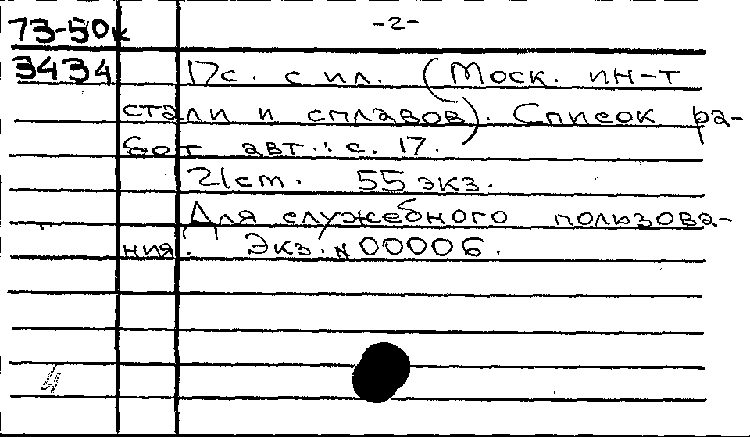 73-50к -2-
3434 17с. с ил. (Моск. ин-т
стали и сплавов). Список ра-
бот авт.: с. 17.
21см. 55 экз.
Для служебного пользова-
ния. Экз. № 00006.